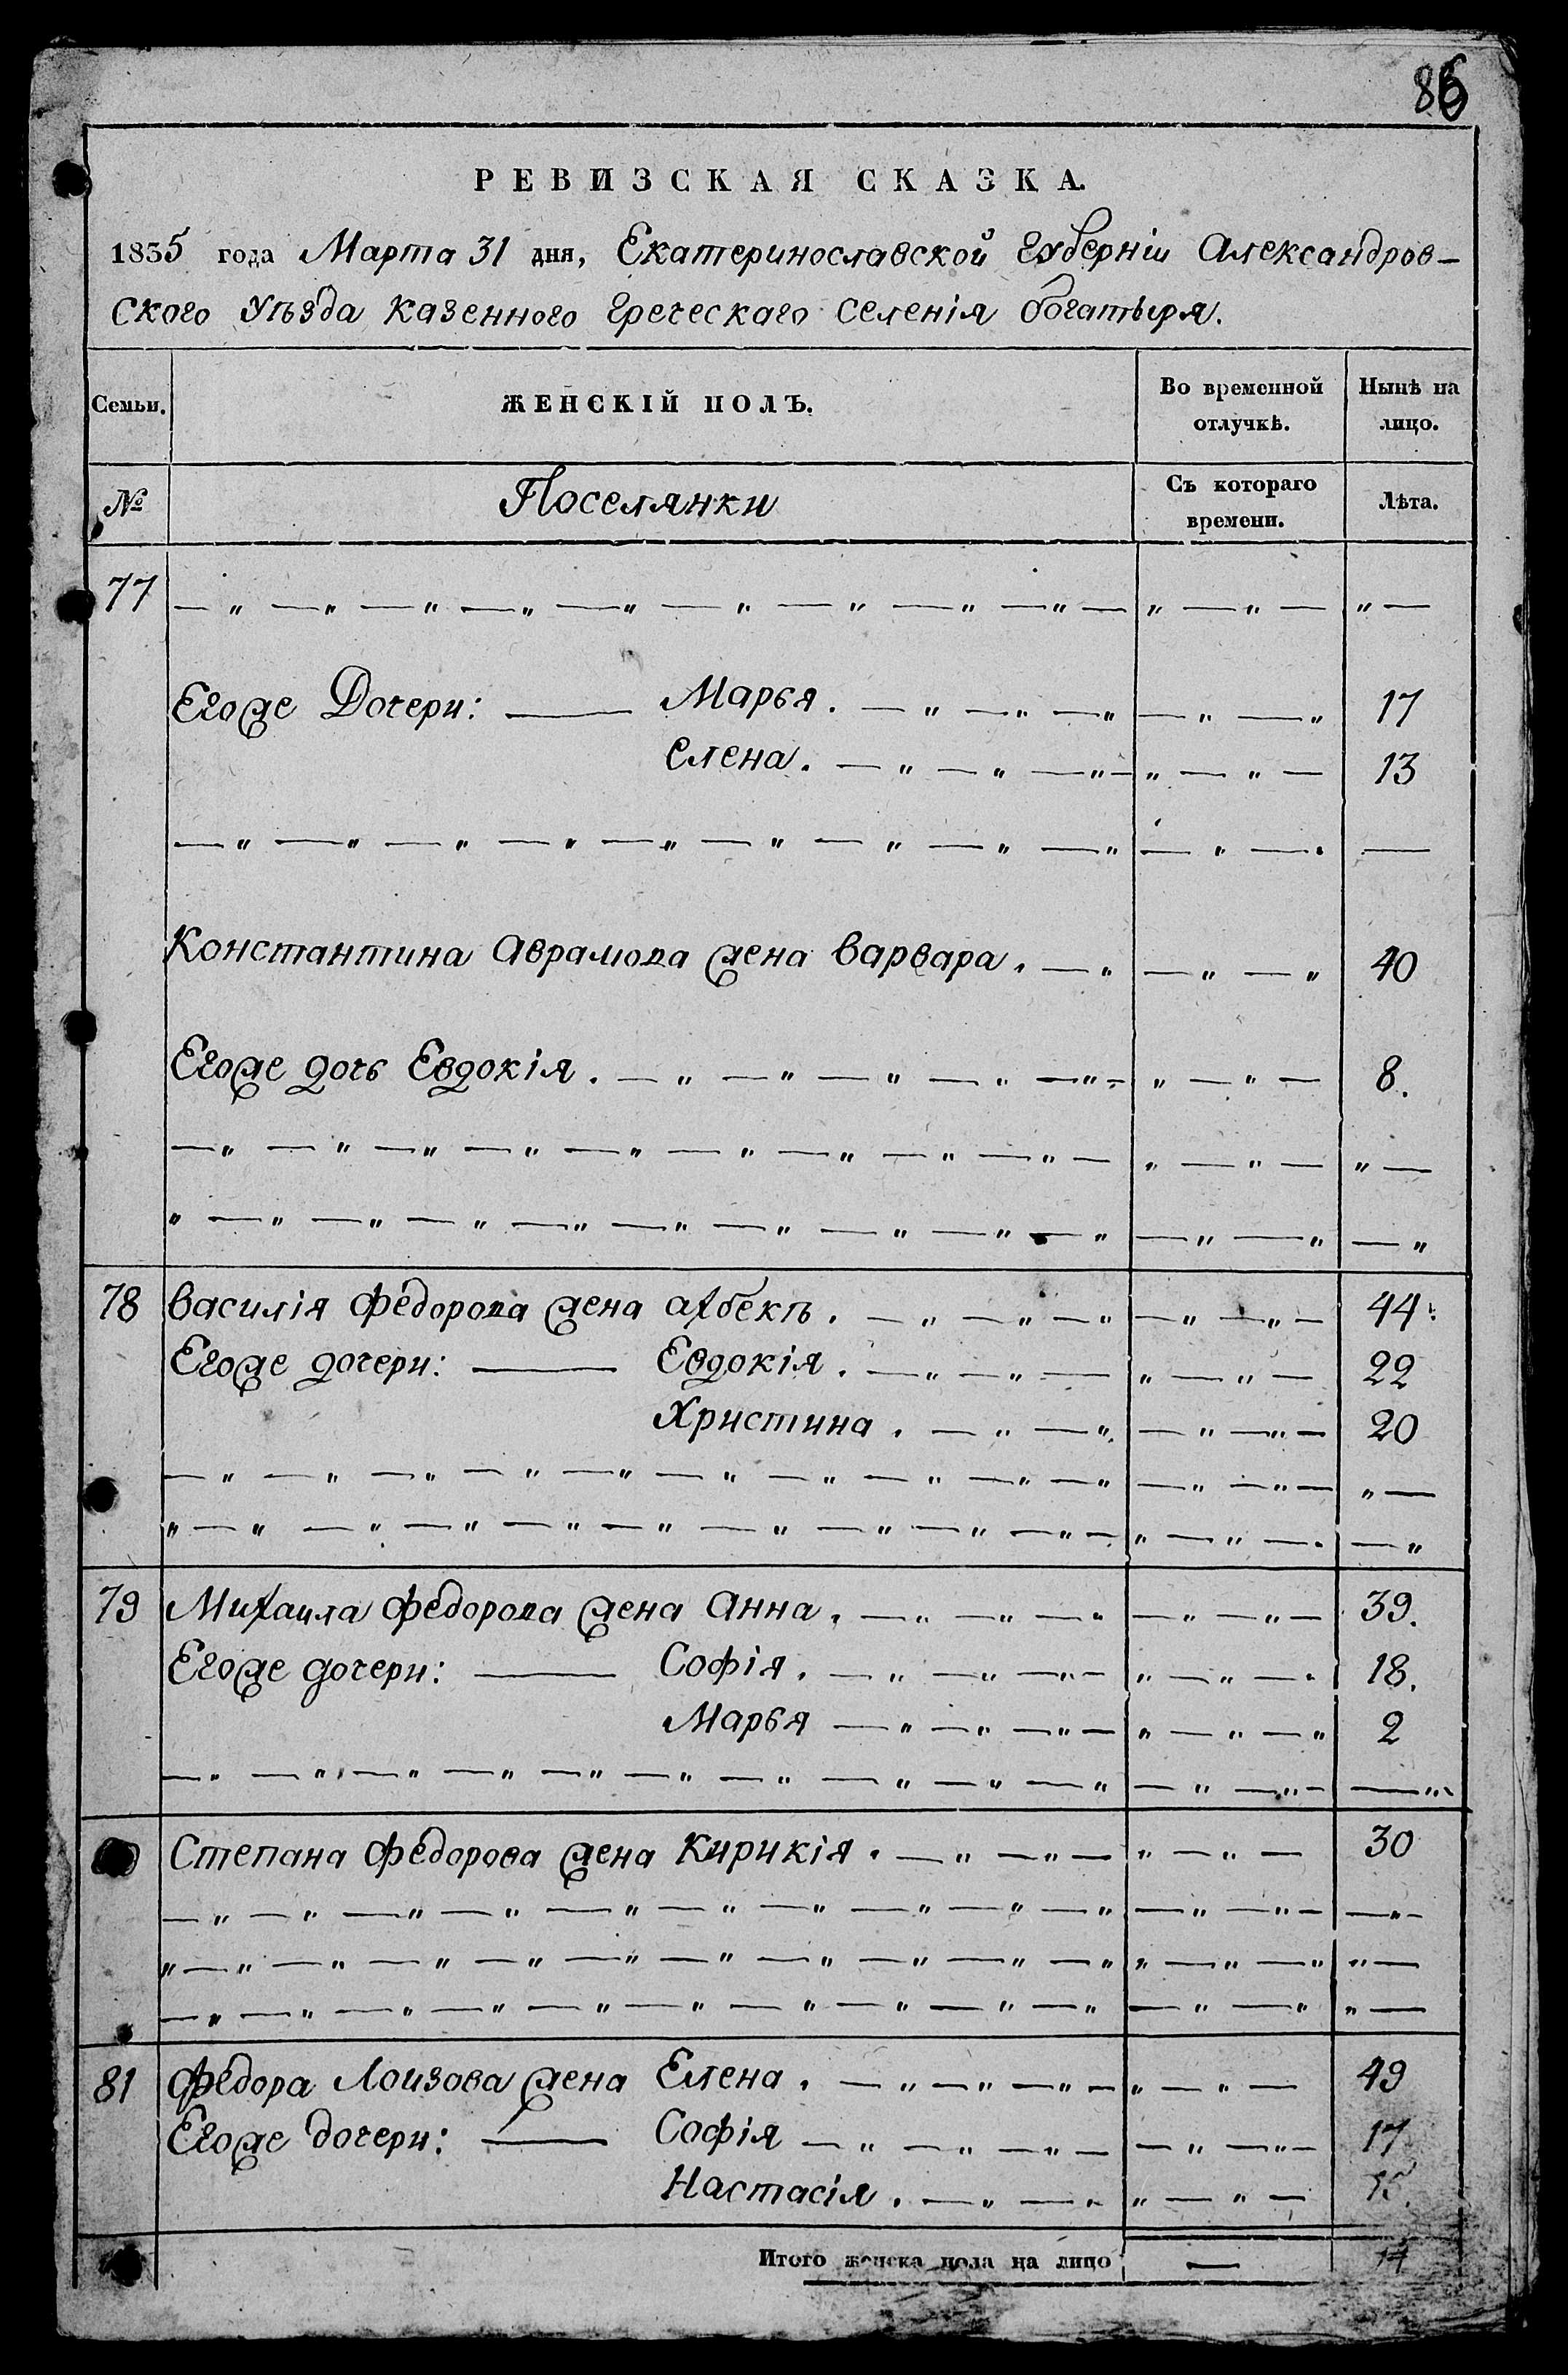 86
РЕВИЗСКАЯ СКАЗКА.
1835 года Марта 31 дня, Екатеринославской Губерніи Александров-
ского Уѣзда казенного Греческаго селенія Богатыря.
Семьи. ЖЕНСКІЙ ПОЛЪ. Во временной отлучкѣ. Нынѣ на лицо.
№ Поселянки Съ котораго времени. Лѣта.
77
Егоже Дочери: Марья. 17
Елена. 13
Константина Аврамова жена Варвара. 40
Егоже дочь Евдокія. 8.
78 Василія Федорова жена 44
Егоже дочери: Евдокія. 22
Христина. 20
79 Михаила Федорова жена Анна. 39.
Егоже дочери: Софія. 18.
Марья 2
Степана Федорова жена Кирикія. 30
81 Федора Лоизова жена Елена. 49
Егоже дочери: Софія 17
Настасія. 15.
Итого женска пола на лицо — 14